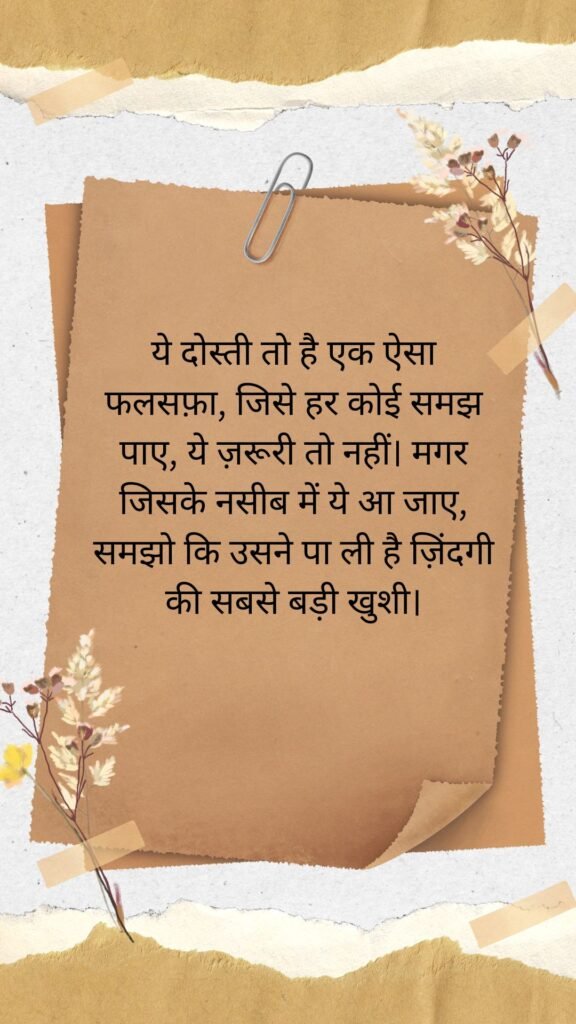 ये दोस्ती तो है एक ऐसा
फलसफ़ा, जिसे हर कोई समझ
पाए, ये ज़रूरी तो नहीं। मगर
जिसके नसीब में ये आ जाए,
समझो कि उसने पा ली है ज़िंदगी
की सबसे बड़ी खुशी।